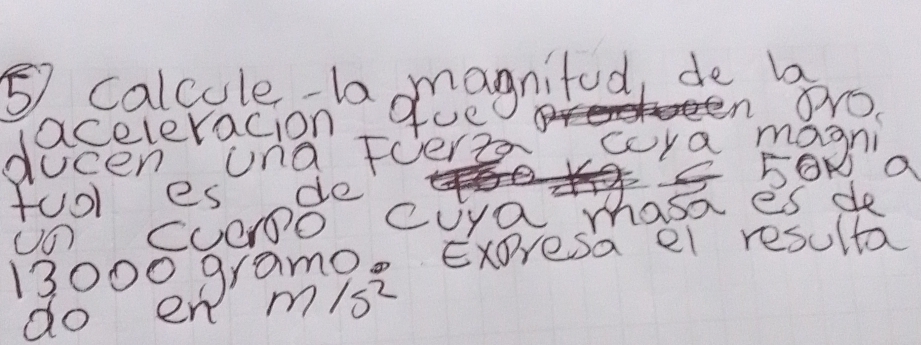 5) Calcule la magnitud, de la
aceleracion que pro.
ducen una Fuerza cuya magni
tud es de 50N a
un cuerpo cuya masa es de
13000 gramo. Expresa el resulta
do en m/s²